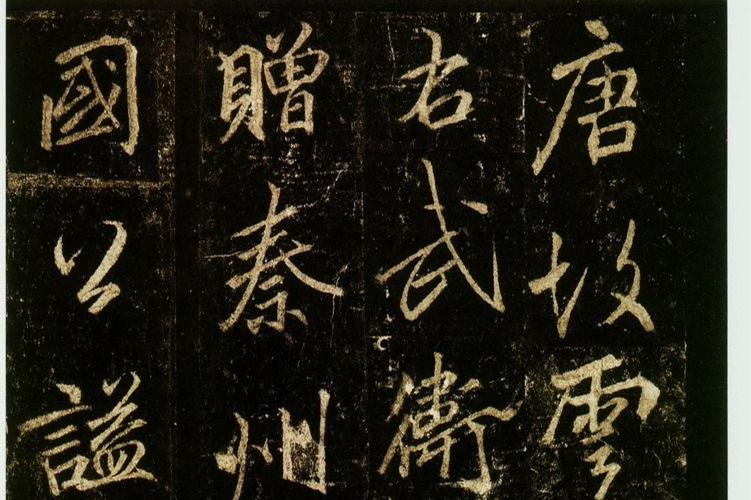 唐故雲
右武衛
贈秦州
國公諡